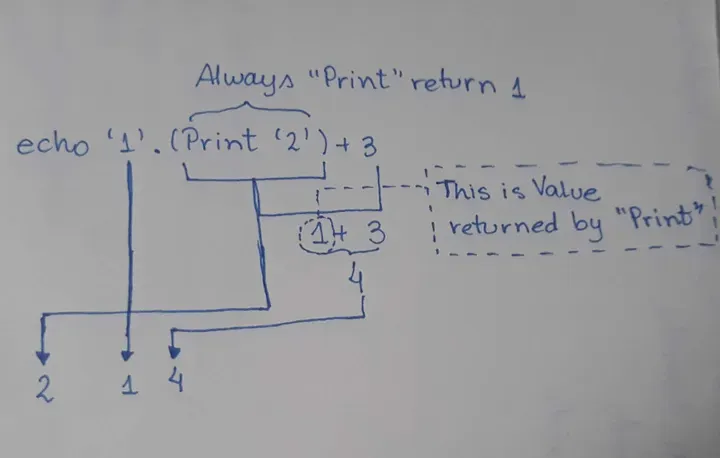 Always "Print" return 1
echo '1'.(Print '2')+3
This is Value
returned by "Print"
1+3
4
2 1 4